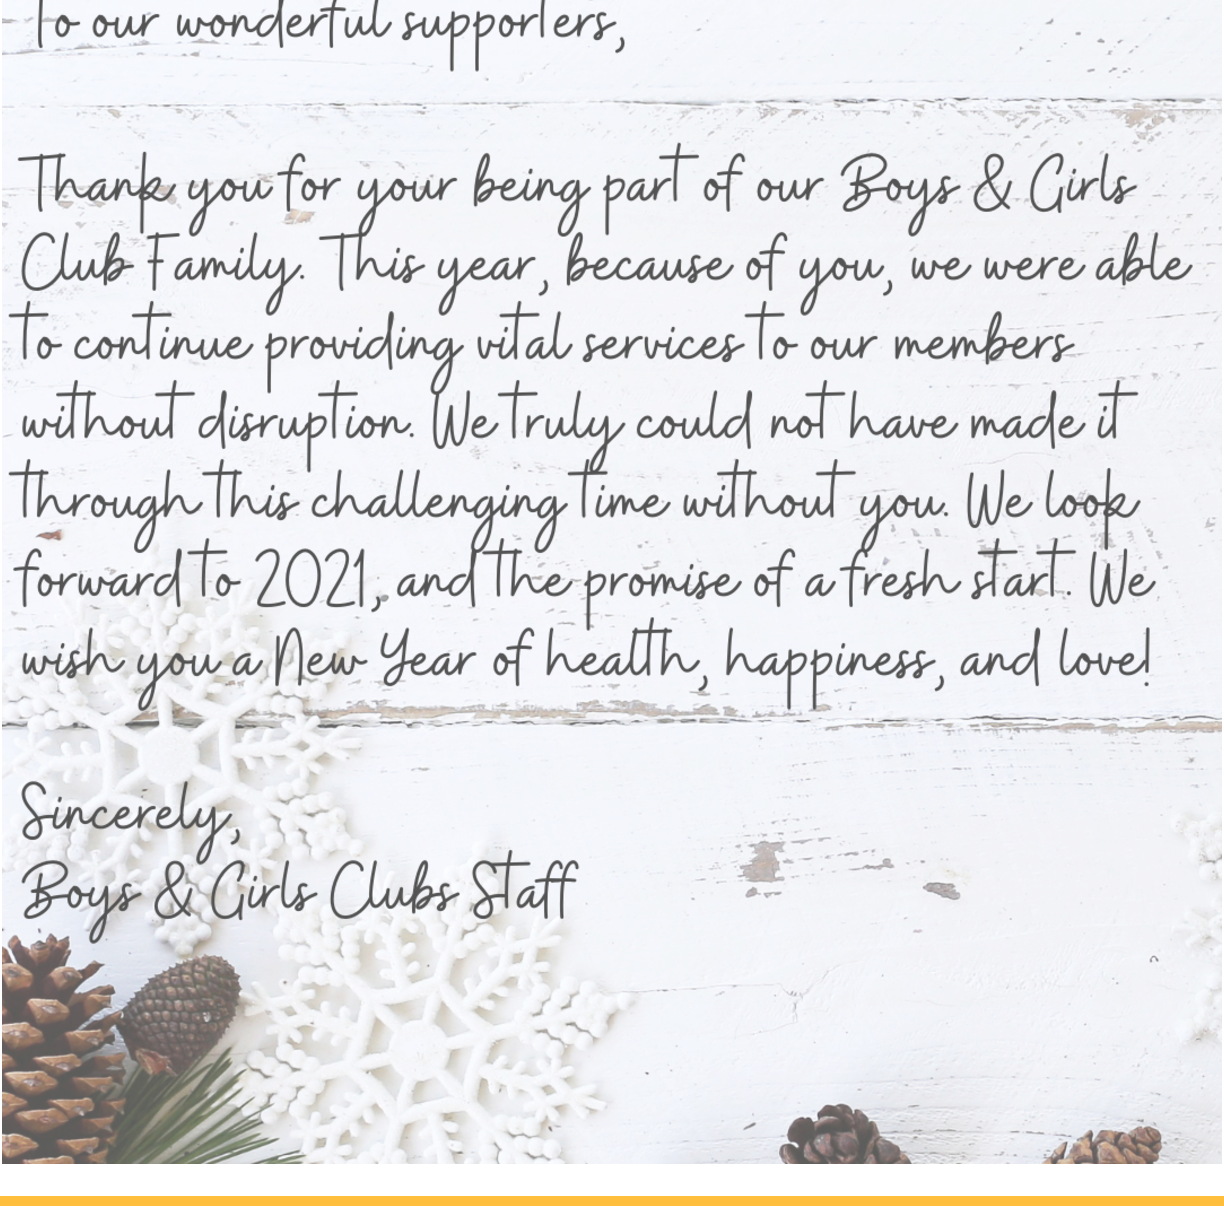 To our wonderful supporters,
Thank you for your being part of our Boys & Girls
Club Family. This year, because of you, we were able
to continue providing vital services to our members
without disruption. We truly could not have made it
through this challenging time without you. We look
forward to 2021, and the promise of a fresh start. We
wish you a New Year of health, happiness, and love!
Sincerely,
Boys & Girls Clubs Staff